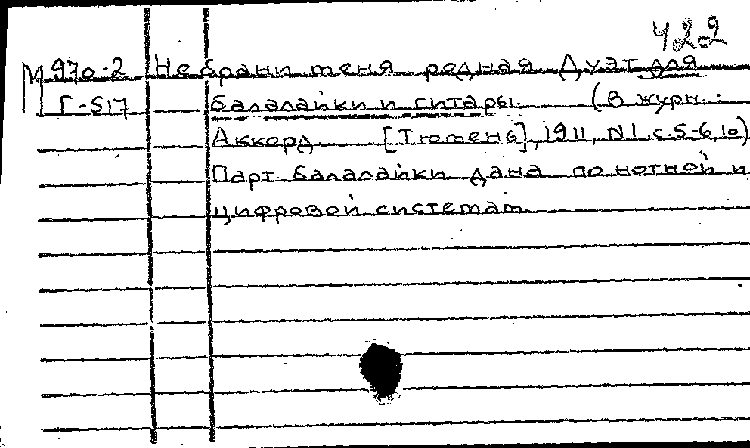 422
М 970-2 Не брани меня родная Дуэт для
Г-517 балалайки и гитары. (В журн.:
Аккорд [Тюмень], 1911, N1, с.5-6, 10)
Парт. балалайки дана по нотной и
цифровой системам